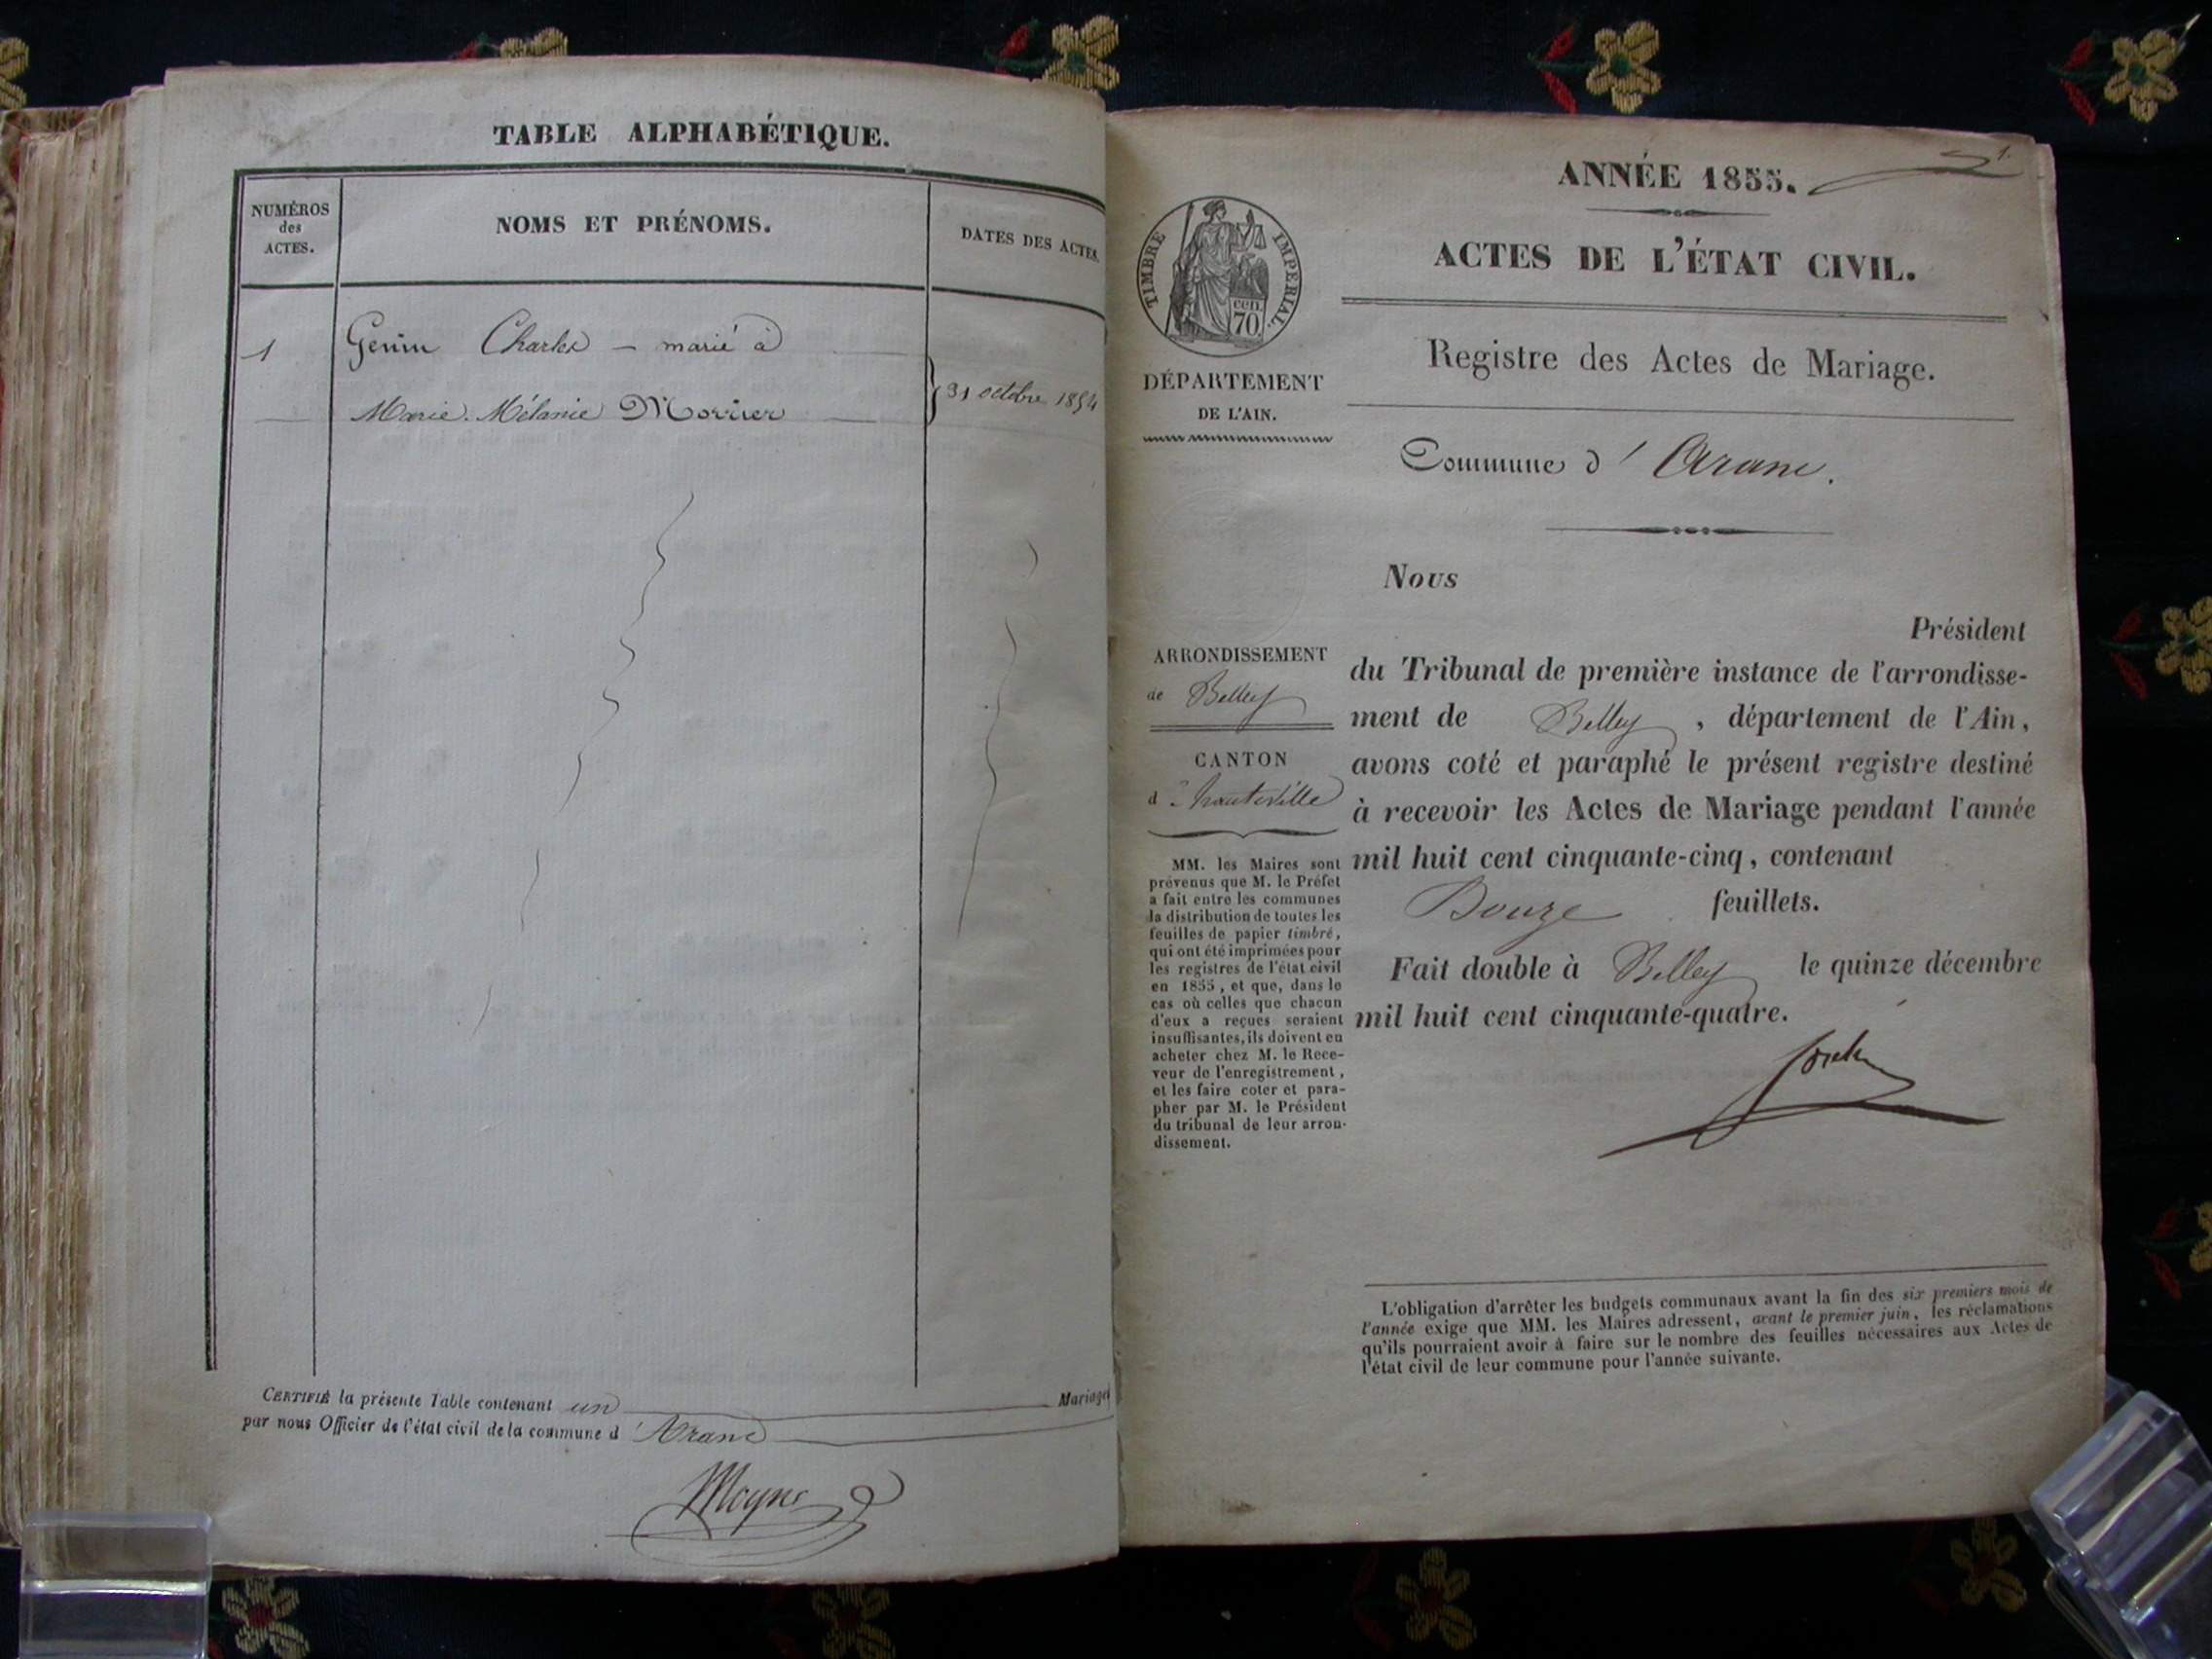 TABLE ALPHABÉTIQUE.
NUMÉROS
des
ACTES.
NOMS ET PRÉNOMS.
DATES DES ACTES.
1 Genin Charles — marié à
Marie Mélanie Morrier
31 octobre 1854
CERTIFIÉ la présente Table contenant un Mariages
par nous Officier de l'état civil de la commune d'Aranc
Moyne
1.
ANNÉE 1855.
ACTES DE L'ÉTAT CIVIL.
TIMBRE IMPERIAL.
cen.
70
Registre des Actes de Mariage.
DÉPARTEMENT
DE L'AIN.
Commune d'Aranc.
Nous
Président
ARRONDISSEMENT
de Belley
CANTON
d'hauteville
du Tribunal de première instance de l'arrondisse-
ment de Belley, département de l'Ain,
avons coté et paraphé le présent registre destiné
à recevoir les Actes de Mariage pendant l'année
mil huit cent cinquante-cinq, contenant
Douze feuillets.
Fait double à Belley le quinze décembre
mil huit cent cinquante-quatre.
MM. les Maires sont
prévenus que M. le Préfet
a fait entre les communes
la distribution de toutes les
feuilles de papier timbré,
qui ont été imprimées pour
les registres de l'état civil
en 1855, et que, dans le
cas où celles que chacun
d'eux a reçues seraient
insuffisantes, ils doivent en
acheter chez M. le Rece-
veur de l'enregistrement,
et les faire coter et para-
pher par M. le Président
du tribunal de leur arron-
dissement.
L'obligation d'arrêter les budgets communaux avant la fin des six premiers mois de
l'année exige que MM. les Maires adressent, avant le premier juin, les réclamations
qu'ils pourraient avoir à faire sur le nombre des feuilles nécessaires aux Actes de
l'état civil de leur commune pour l'année suivante.